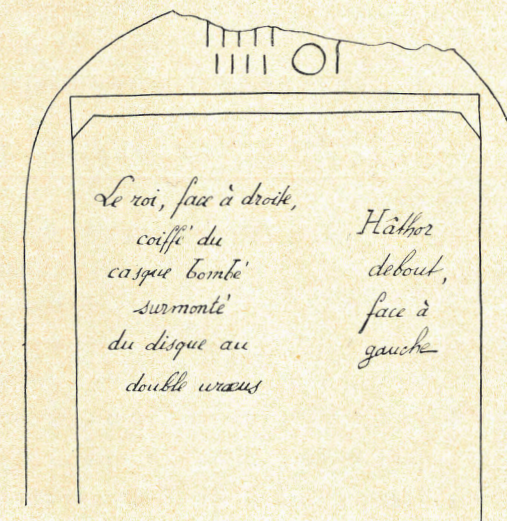 Le roi, face à droite,
coiffé du
casque bombé
surmonté
du disque au
double uraeus
Hâthor
debout,
face à
gauche